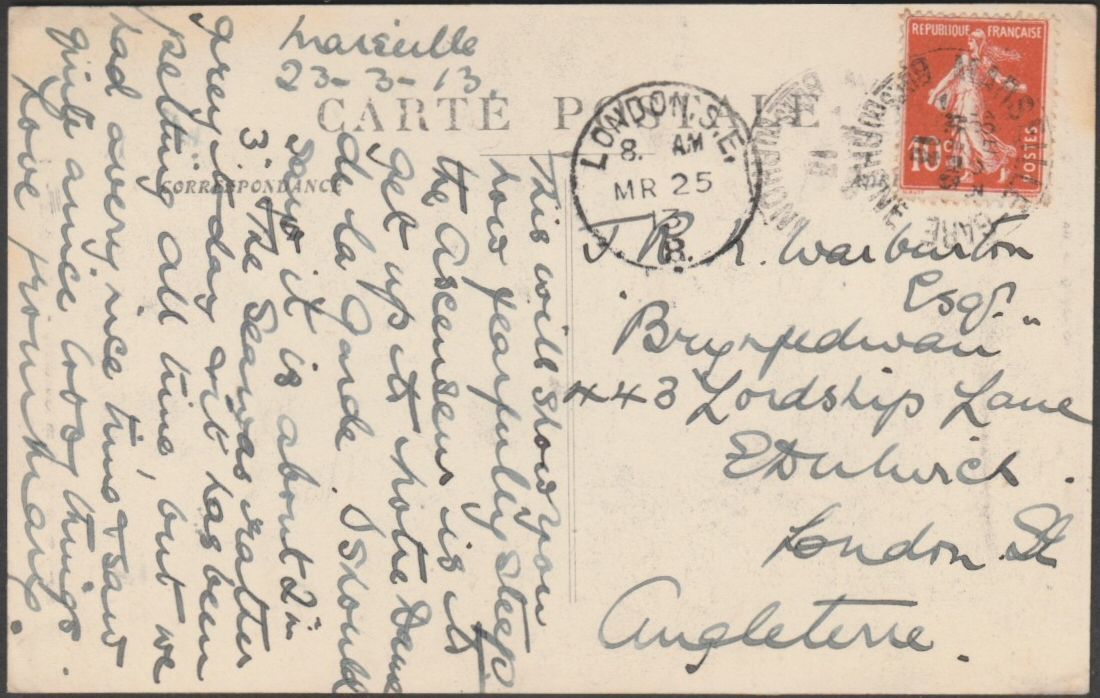 Marseille
23-3-13.
CARTE POSTALE
CORRESPONDANCE
This will show you
how fearfully steep
the Ascenseur is it
get up it Notre Dame
de la Garde I should
say it is about 2 in
3. The Sea was rather
grey to-day & it has been
pelting all time, but we
had a very nice time & saw
quite a nice lot of things.
Love from Mary.
LONDON, S.E.
8. AM
MR 25
13
8.
REPUBLIQUE FRANÇAISE
10 c.
POSTES
MARSEILLE
GARE
J. R. R. Warburton
Esqr.
443 Lordship Lane
E Dulwich
London. SE
Angleterre.